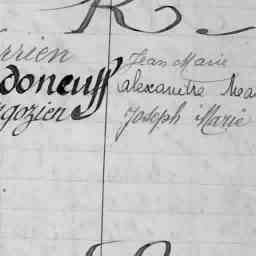 R
rrien Jean Marie
doneuff alexandre Ma
gozien Joseph Marie